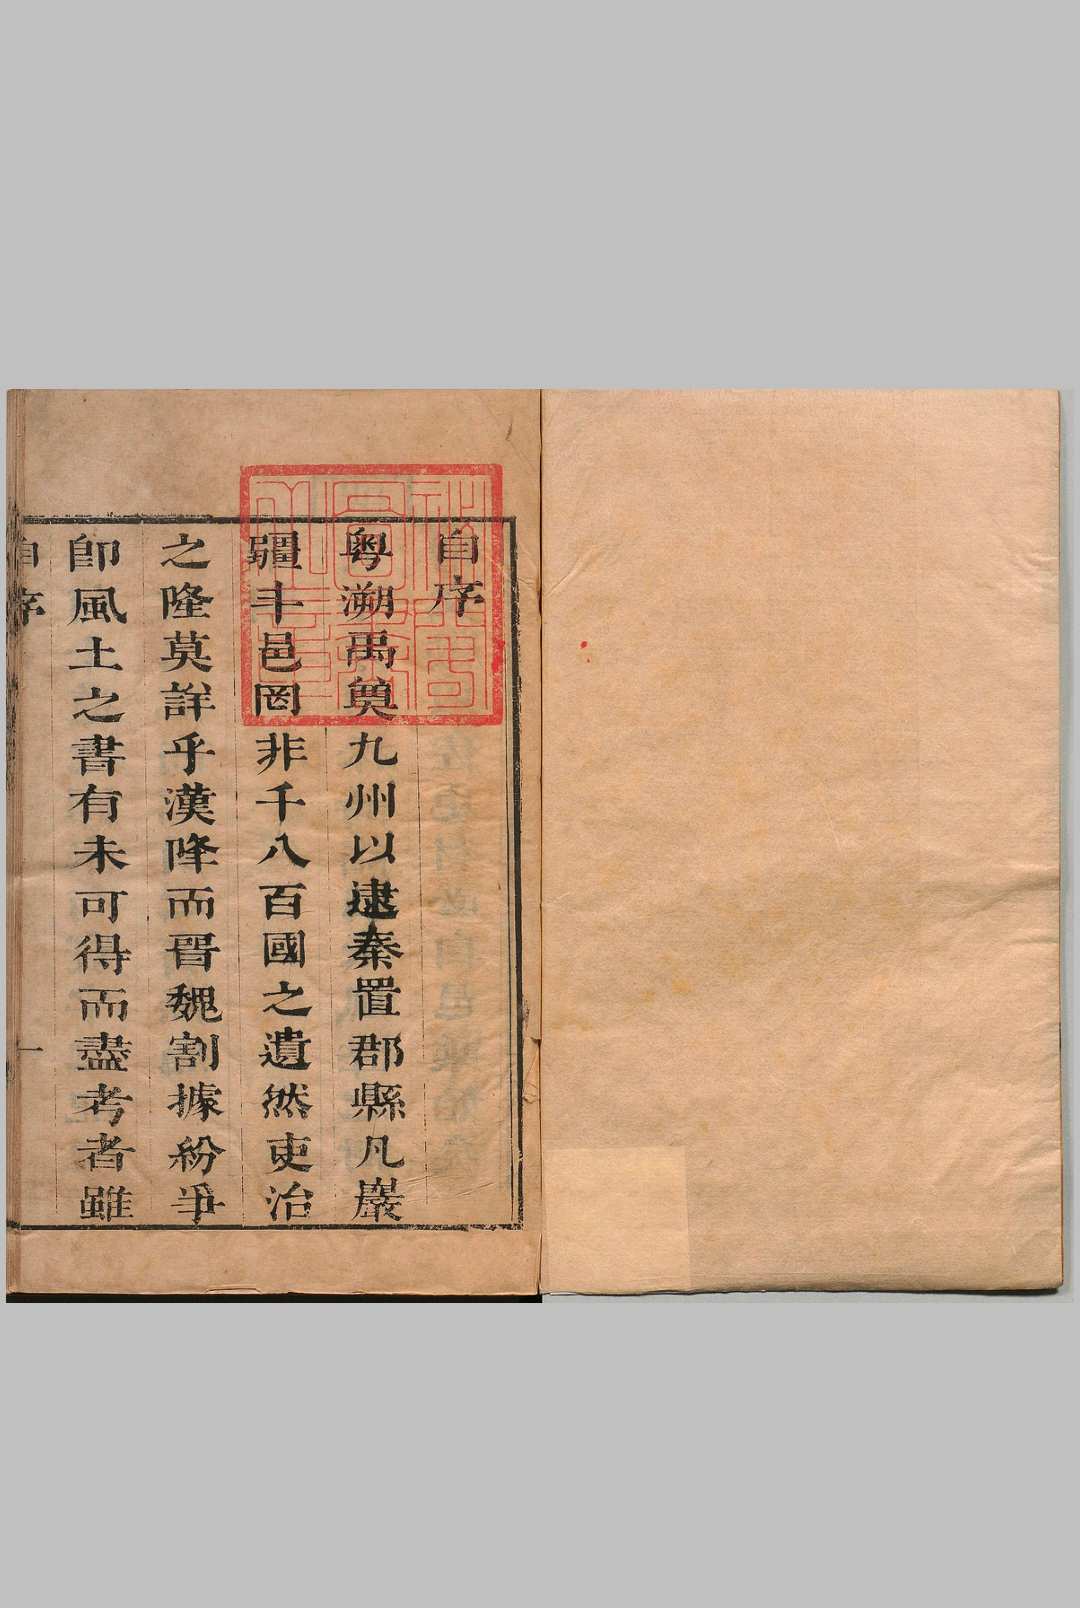 自序
粵溯禹奠九州以逮秦置郡縣凡巖
疆丰邑罔非千八百國之遺然吏治
之隆莫詳乎漢降而晉魏割據紛爭
卽風土之書有未可得而盡考者雖
自序
一